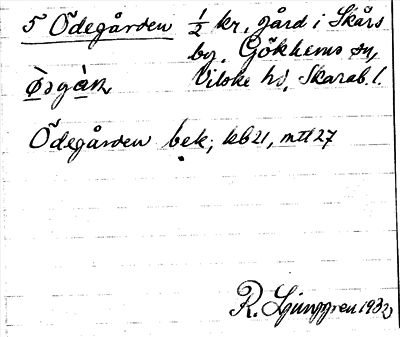 5 Ödegården ½ kr, gård i Skårs
by, Gökhems sn,
Vilske hd, Skarab. l.
Ödegården bek; kb21, mtl27
R. Ljunggren 1932